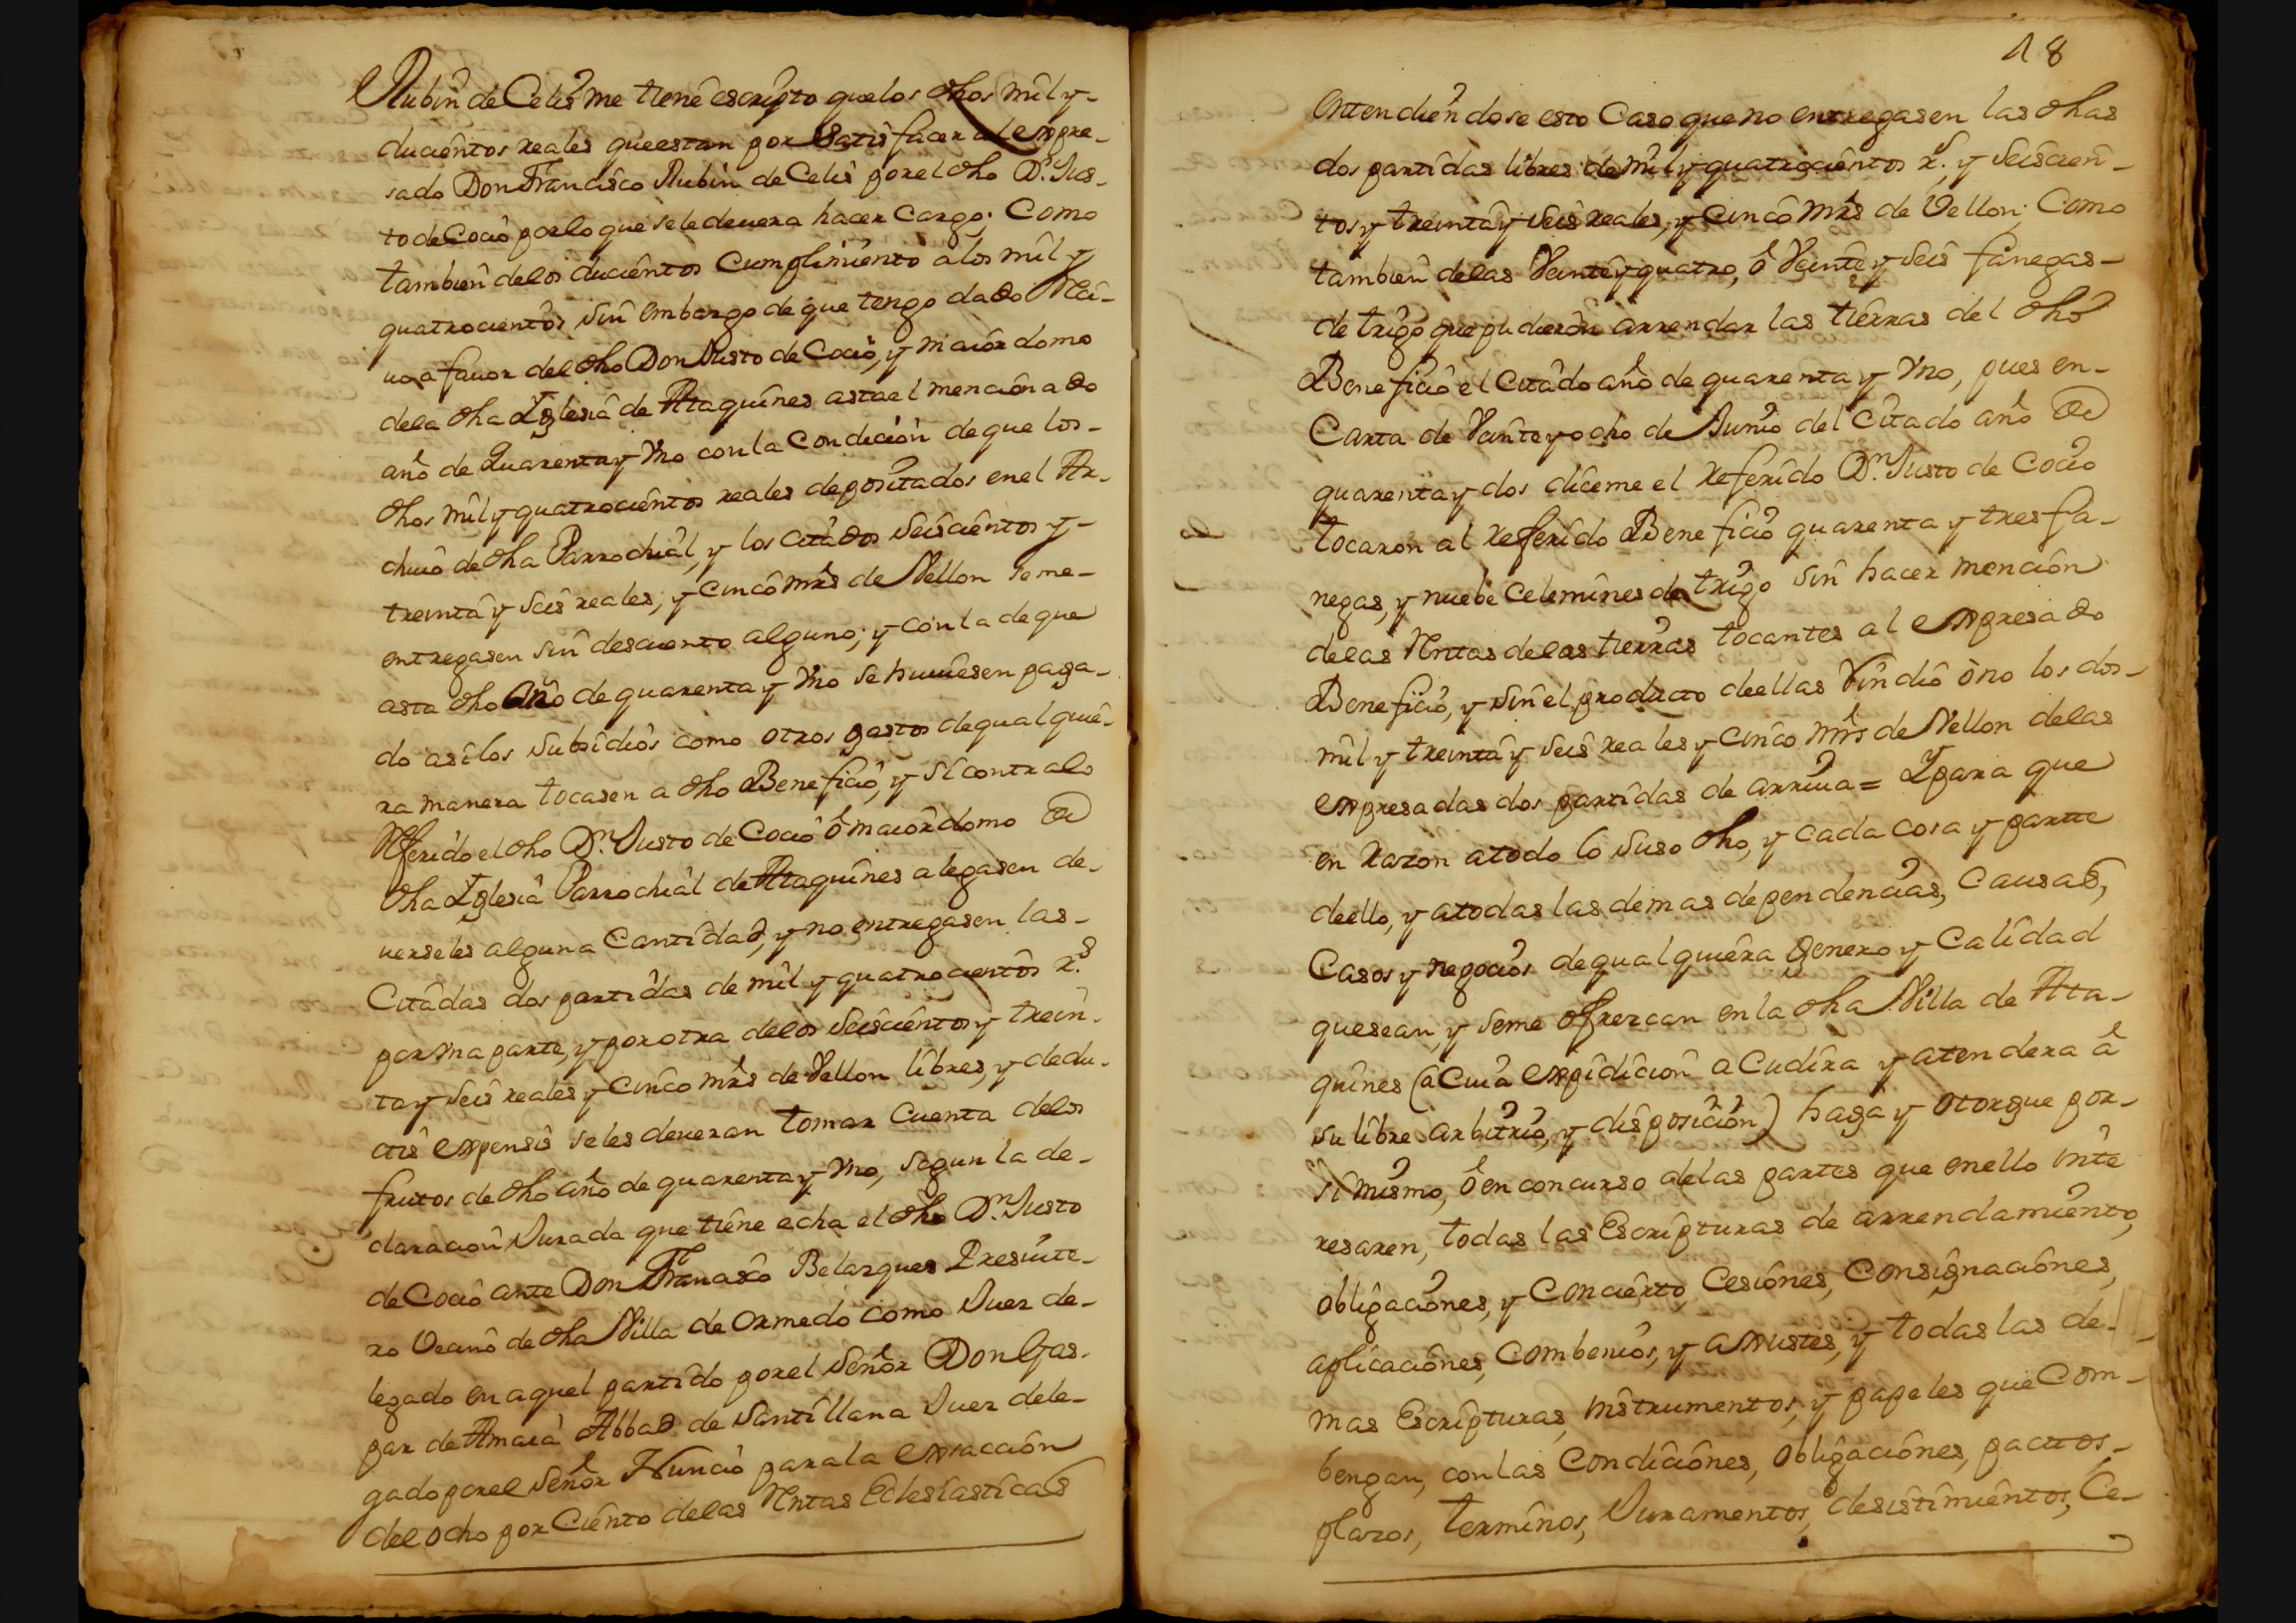 Rubin de Celis me tiene escripto que los dhos mil y-
ducientos reales que estan por Satisfacer al expre-
sado Don Francisco Rubin de Celis por el dho Dn. Jus-
to de Cocio por lo que se le devera hacer Cargo; Como
tambien delos ducientos Cumplimiento a los mil y
quatrocientos sin embargo de que tengo dado Reci-
vo a favor del dho Don Justo de Cocio, y maiordomo
dela dha Yglesia de Ataquines asta el mencionado
año de Quarenta y Vno con la Condicion de que los-
dhos mil y quatrocientos reales depositados en el Ar-
chivo de dha Parrochial, y los citados Seiscientos y-
treinta y seis reales, y cinco mrs de Vellon se me-
entregasen sin descuento alguno; y con la de que
asta dho año de quarenta y Vno se huviesen paga-
do asi los Subsidios como otros gastos de qualquie-
ra manera tocasen a dho Beneficio, y si contra lo
Referido el dho Dn. Justo de Cocio ô maiordomo de
dha Yglesia Parrochial de Ataquines alegasen de-
verseles alguna Cantidad, y no entregasen las-
Citadas dos partidas de mil y quatrocientos rs.
por vna parte, y por otra delos Seiscientos y trein-
ta y seis reales y cinco mrs de Vellon libres, y dedu-
ctis expensis se les deveran tomar Cuenta delos
frutos de dho año de quarenta y Vno, segun la de-
claracion Jurada que tiene echa el dho Dn. Justo
de Cocio ante Don Francisco Belazquez Presvite-
ro Vecino de dha Villa de Olmedo como Juez de-
legado en aquel partido por el Señor Don Gas-
par de Amaia Abbad de Santillana Juez dele-
gado por el Señor Nuncio para la exaccion
del ocho por Ciento delas Rentas Eclesiasticas
18
entendiendose esto Caso que no entregasen las dhas
dos partidas libres de mil y quatrocientos rs. y Seiscien-
tos y treinta y seis reales, y cinco mrs de Vellon; Como
tambien delas Veinte y quatro, ô Veinte y seis fanegas-
de trigo que pudieron arrendar las tierras del dho
Beneficio el citado año de quarenta y Vno, pues en-
Carta de Veinte y ocho de Junio del Citado año de
quarenta y dos diceme el Referido Dn. Justo de Cocio
tocaron al Referido Beneficio quarenta y tres fa-
negas, y nuebe celemines de trigo sin hacer mencion
delas Rentas delas tierras tocantes al expresado
Beneficio, y sin el producto de ellas Vindio ò no los dos-
mil y treinta y seis reales y cinco mrs de Vellon delas
expresadas dos partidas de arriva = Y para que
en Razon a todo lo Suso dho, y cada cosa y parte
de ello, y a todas las demas dependencias, Causas,
Casos y negocios de qualquiera genero y Calidad
que sean, y se me ofrezcan en la dha Villa de Ata-
quines (a Cuia expidicion acudira y atendera â
su libre arbitrio, y disposicion) haga y otorgue por-
si mismo, ô en concurso delas partes que en ello inte
resaren, todas las Escripturas de arrendamiento,
obligaciones, y Concierto, Cesiones, Consignaciones,
aplicaciones, Combenios, y axustes, y todas las de-
mas Escripturas, Instrumentos, y papeles que Com-
bengan, con las Condiciones, Obligaciones, pactos-
plazos, terminos, Juramentos, desistimientos, Ce-